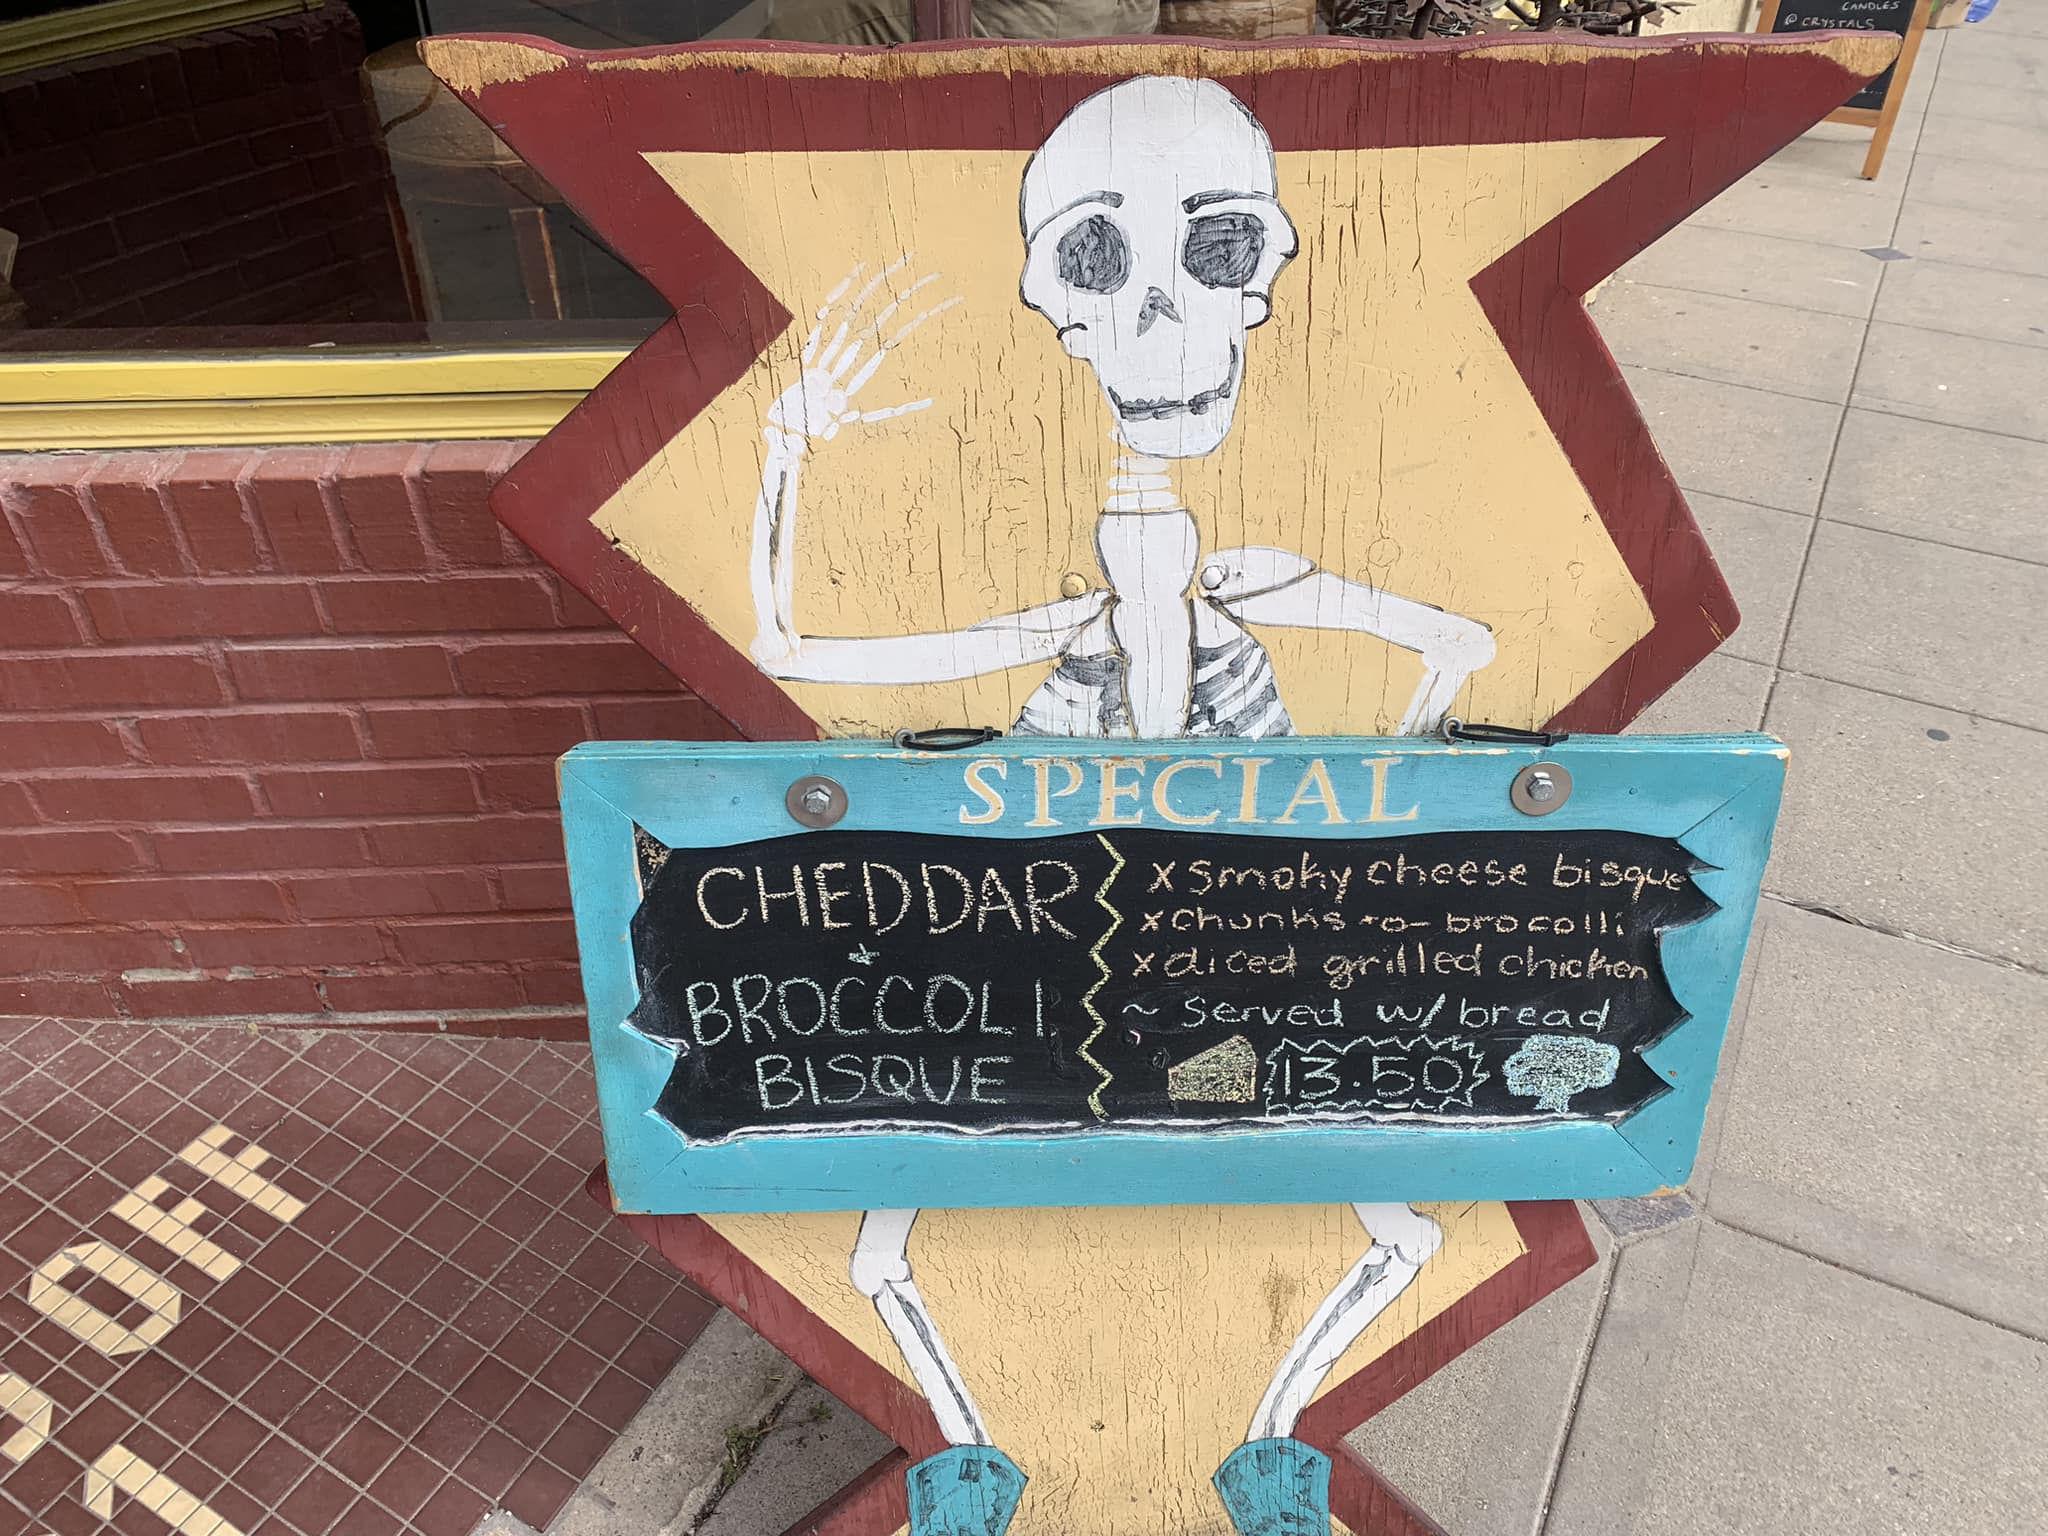 CANDLES
@ CRYSTALS
SPECIAL
CHEDDAR
+
BROCCOLI
BISQUE
x smoky cheese bisque
x chunks -o- brocolli
x diced grilled chicken
~ served w/ bread
13.50
OFF